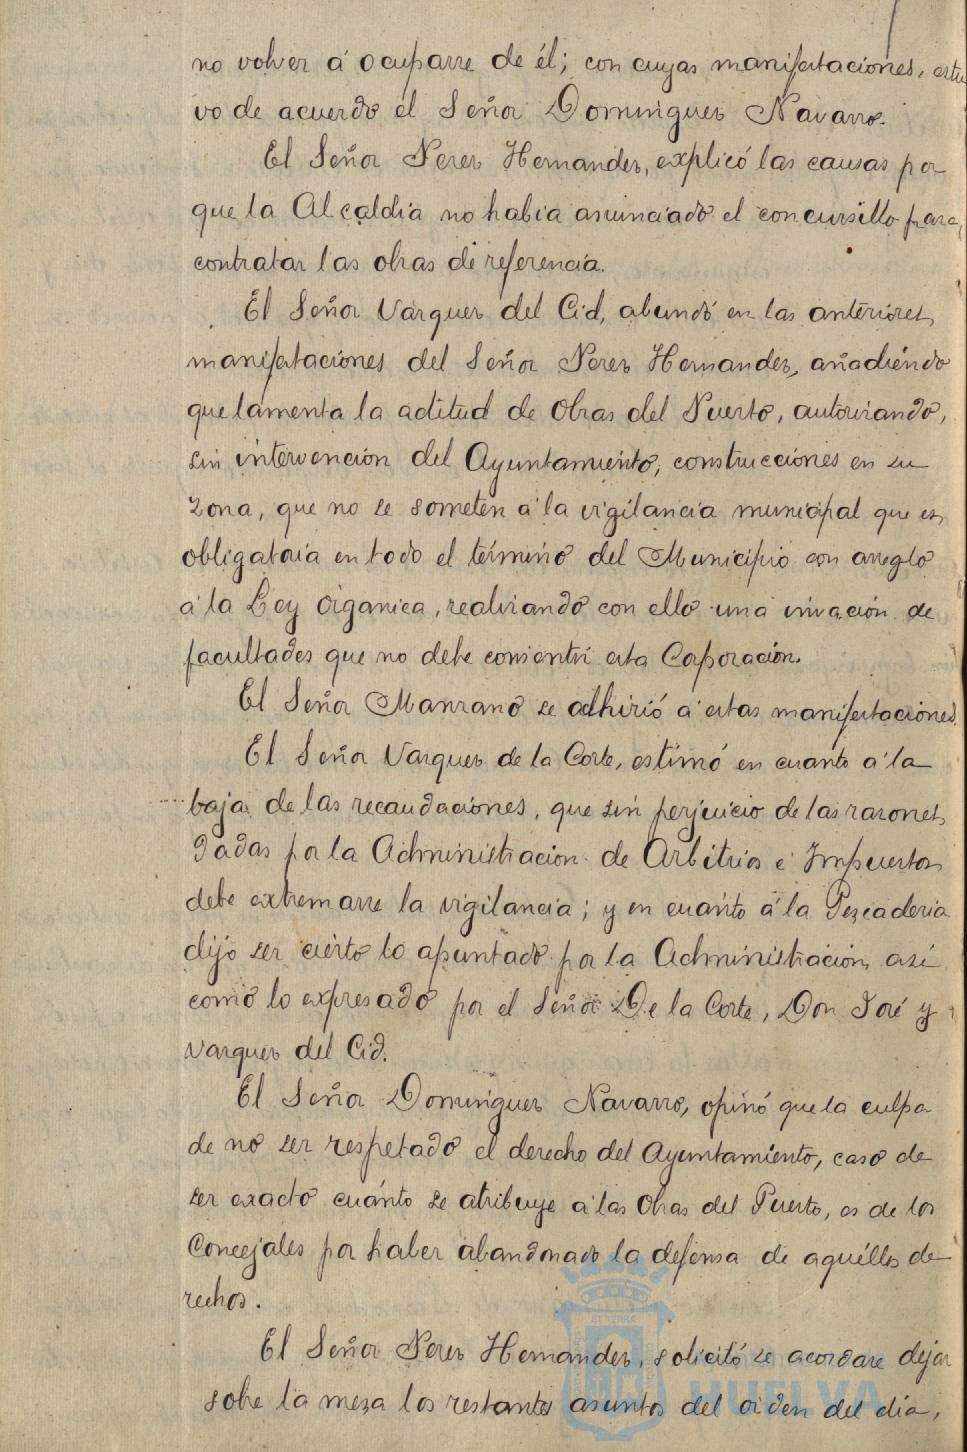 no volver á ocuparse de él; con cuyas manifestaciones, estu
vo de acuerdo el Señor Dominguez Navarro.
El Señor Perez Hernandez, explicó las causas por
que la Alcaldia no habia anunciado el concursillo para
contratar las obras de referencia.
El Señor Vazquez del Cid, abundó en las anteriores
manifestaciones del Señor Perez Hernandez, añadiendo
que lamenta la actitud de Obras del Puerto, autorizando,
sin intervención del Ayuntamiento, construcciones en su
zona, que no se someten á la vigilancia municipal que es
obligatoria en todo el término del Municipio con arreglo
á la Ley Organica, realizando con ello una invación de
facultades que no debe consentir esta Corporación.
El Señor Manzano se adhirió á estas manifestaciones.
El Señor Vazquez de la Corte, estimó en cuanto á la
baja de las recaudaciones, que sin perjuicio de las razones
dadas por la Administración de Arbitrios é Impuestos
debe extremarse la vigilancia; y en cuánto á la Pezcaderia
dijo ser cierto lo apuntado por la Administración, así
como lo expresado por el Señor De la Corte, Don José y
Vazquez del Cid.
El Señor Dominguez Navarro, opinó que la culpa
de no ser respetado el derecho del Ayuntamiento, caso de
ser exacto cuánto se atribuye á las Obras del Puerto, es de los
Concejales por haber abandonado la defensa de aquéllos de
rechos.
El Señor Perez Hernandez, solicitó se acordare dejar
sobre la meza los restantes asuntos del orden del dia,
HUELVA